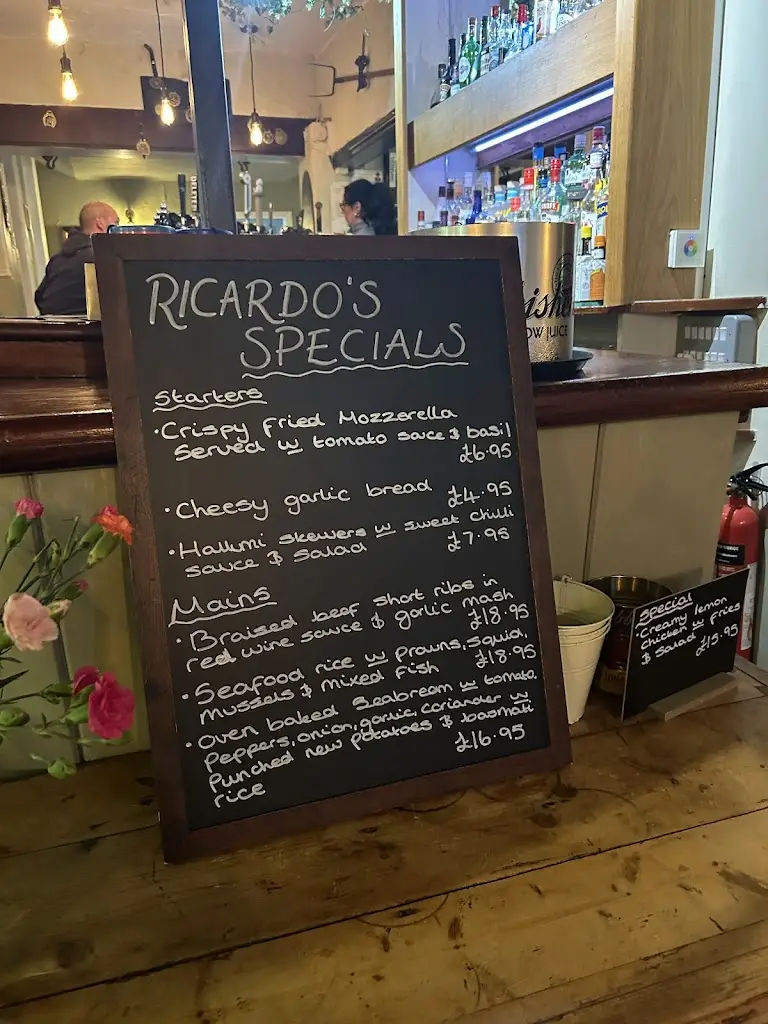 RICARDO'S
SPECIALS
Starters
·Crispy Fried Mozzerella
Served w tomato sauce & basil
£6.95
·Cheesy garlic bread £4.95
·Hallumi skewers w sweet chilli
sauce & salad £7.95
Mains
·Braised beef short ribs in
red wine sauce & garlic mash
£18.95
·Seafood rice w prawns, squid,
mussels & mixed fish £18.95
·Oven baked Seabream w tomato,
Peppers, onion, garlic, coriander w
Punched new potatoes & basmati
rice £16.95
Special
·Creamy lemon
Chicken w fries
& salad £15.95
OW JUICE